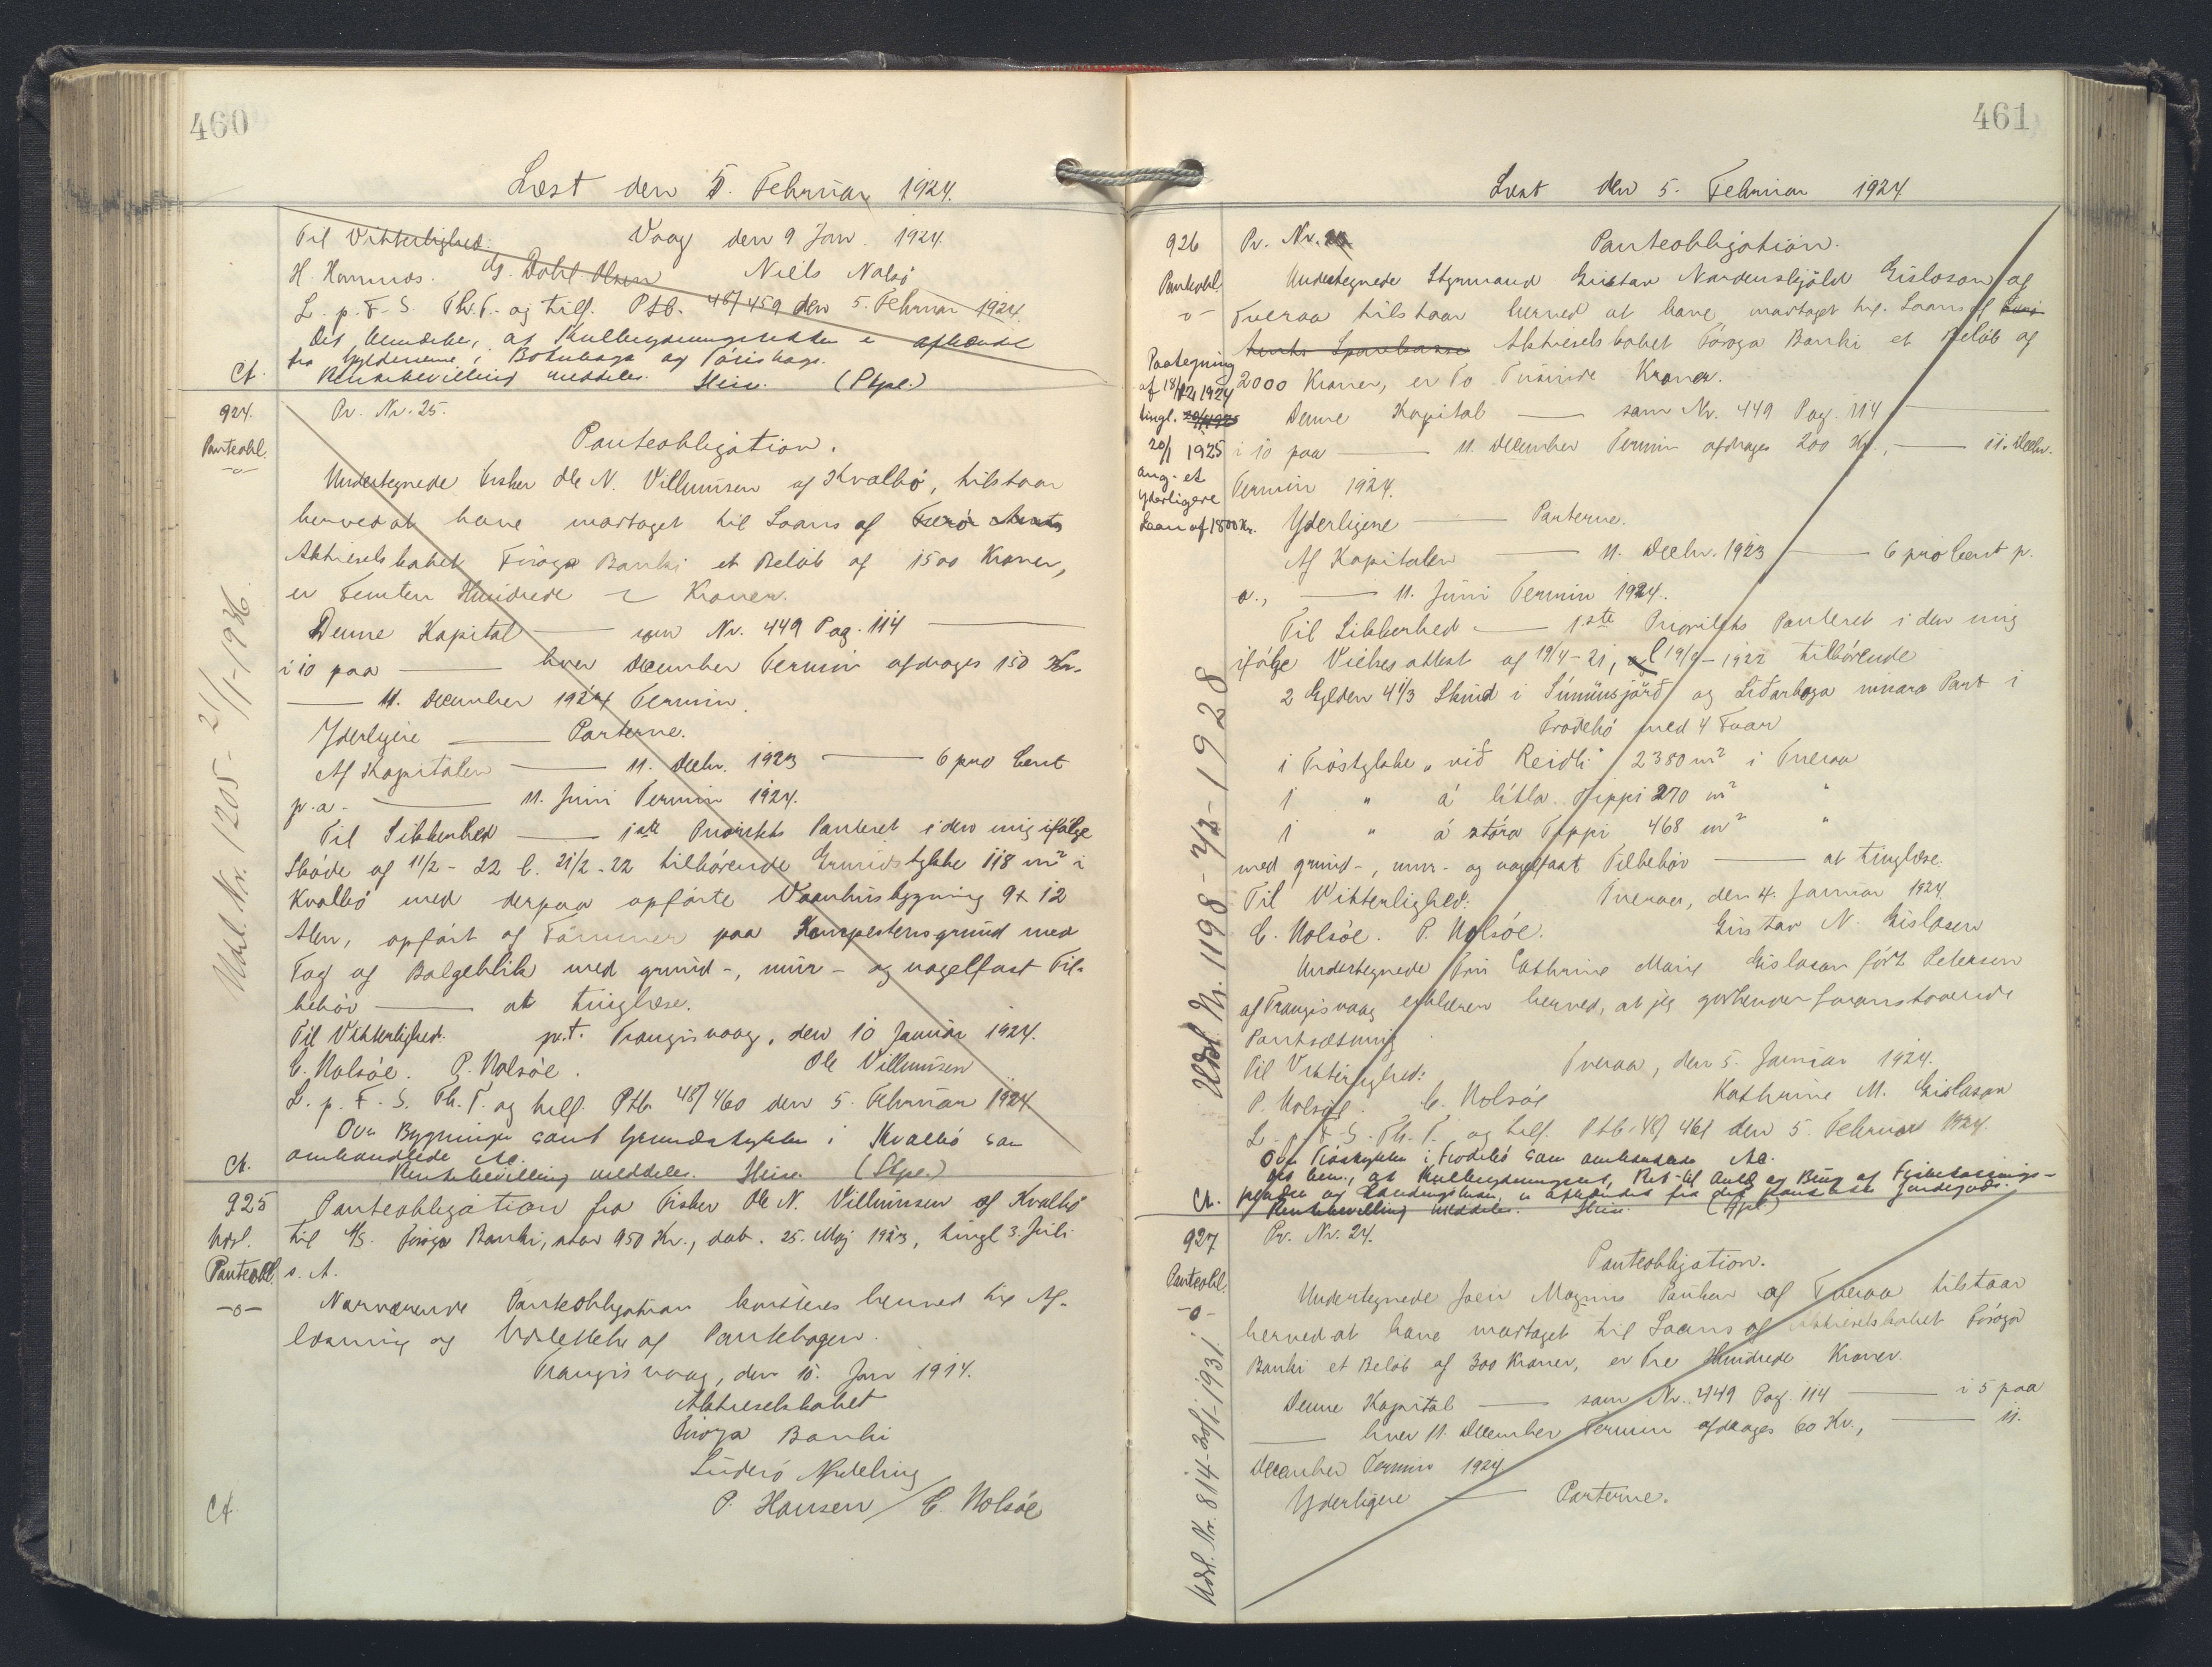 460
Læst den 5. Februar 1924.
Til Vitterlighed: Vaag den 9 Jan. 1924.
H. Hammer. G. Dahl Olsen Niels Nolsö
L. p. F. S. Th. T. og tilf. Ptb. 48/459 den 5. Februar 1924.
Det bemærkes, at Kulbrydningsretten er afhændet
fra Gyldenerne i Botnhaga og
Ct. Rentebevilling meddeles. (Stpl.)
924. Pr. Nr. 25.
Panteobl. Panteobligation.
-"-
Undertegnede Fisker Ole N. Villumsen af Kvalbö, tilstaar
herved at have modtaget til Laans af Færö Amts
Aktieselskabet Föroya Banki et Belöb af 1500 Kroner,
er Femten Hundrede Kroner.
Denne Kapital — som Nr. 449 Pag. 114 —
i 10 paa — hver December Termin afdrages 150 Kr.
— 11. December 1924 Termin.
Yderligere — Parterne.
Af Kapitalen — 11. Decbr. 1923 — 6 pro Cent
p.a. — 11. Juni Termin 1924.
Til Sikkerhed — 1ste Prioritets Panteret i den mig ifölge
Sköde af 11/2 - 22 l. 21/2 - 22 tilhörende Grundstykke 118 m² i
Kvalbö med derpaa opförte Vaanhusbygning 9 x 12
Alen, opfört af Tömmer paa Kampestensgrund med
Tag af Bølgeblik med grund-, mur- og nagelfast Til-
behör — at tinglæse.
Til Vitterlighed. p.t. Trangisvaag, den 10 Januar 1924.
C. Nolsöe. P. Nolsöe. Ole Villumsen
L. p. F. S. Th. T. og tilf. Ptb. 48/460 den 5. Februar 1924
Over Bygningen samt Grundstykket i Kvalbö som
omhandlede
Ct. Rentebevilling meddeles. (Stpl.)
Udsl. Nr. 1205 - 21/1-1936.
925 Panteobligation fra Fisker Ole N. Villumsen af Kvalbö
Udsl. til A/S. Föroya Banki, stor 950 Kr., dat. 25. Maj 1923, tingl 3. Juli
Panteobl. s. A.
-o- Nærværende Panteobligation kvitteres herved til Af-
læsning og Udslettelse af Pantebogen.
Trangisvaag, den 10. Jan 1914.
Aktieselskabet
Föroya Banki
Suderö Afdeling
P. Hansen / C. Nolsöe
Ct.
461
Læst den 5. Februar 1924
926 Pr. Nr. Panteobligation.
Panteobl. Undertegnede Styrmand Gustav Nordenskjöld Gislason af
-"- Tveraa tilstaar herved at have modtaget til Laans af
Amts Sparekasse Aktieselskabet Föroya Banki et Belöb af
2000 Kroner, er To Tusinde Kroner.
Paategning
af 18/12 1924
tingl.
20/1 1925
ang. et
yderligere
Laan af 1800 Kr.
Denne Kapital — som Nr. 449 Pag. 114 —
i 10 paa — 11. December Termin afdrages 200 Kr., — 11. Decbr.
Termin 1924.
Yderligere — Parterne.
Af Kapitalen — 11. Decbr. 1923 — 6 pro Cent p.
a., — 11. Juni Termin 1924.
Til Sikkerhed — 1ste Prioritets Panteret i den mig
ifölge Vielsesattest af 19/4 - 21, l 19/9 - 1922 tilhörende
2 Gylden 4 1/3 Skind i og Liðarhaga Part i
Frodebö med 4 Faar
1 Tröstykke „við Reidli" 2380 m² i Tveraa
1 " á litla Tippi 270 m² "
1 " á stóra Tippi 468 m² "
med grund-, mur- og nagelfast Tilbehör — at tinglæse.
Til Vitterlighed: Tveraa, den 4. Januar 1924
C. Nolsöe. P. Nolsöe. Gustav N. Gislasen
Undertegnede Fru Cathrine Marie Gislason født Petersen
af Trangisvaag erklærer herved, at jeg godkender foranstaaende
Pantsætning
Til Vitterlighed: Tveraa, den 5. Januar 1924.
P. Nolsöe. C. Nolsöe Kathrine M. Gislason
L. p. F. S. Th. T. og tilf. Ptb. 48/461 den 5. Februar 1924.
Over i Frodebö som omhandlede
Det bem., at Kulbrydningsret, Ret til Anlæg og Brug af
Ct. er afhændet fra det pantsatte Jordegods.
Rentebevilling meddeles. (Stpl.)
Udsl. Nr. 1198 - 7/2 - 1928
927 Pr. Nr. 24.
Panteobl. Panteobligation.
-o- Undertegnede Joen Magnus Poulsen af Tveraa tilstaar
herved at have modtaget til Laans af Aktieselskabet Föroya
Banki et Belöb af 300 Kroner, er Tre Hundrede Kroner.
Denne Kapital — som Nr. 449 Pag. 114 — i 5 paa
— hver 11. December Termin afdrages 60 Kr., — 11.
December Termin 1924.
Yderligere — Parterne.
Udsl. Nr. 814 - 20/1-1931